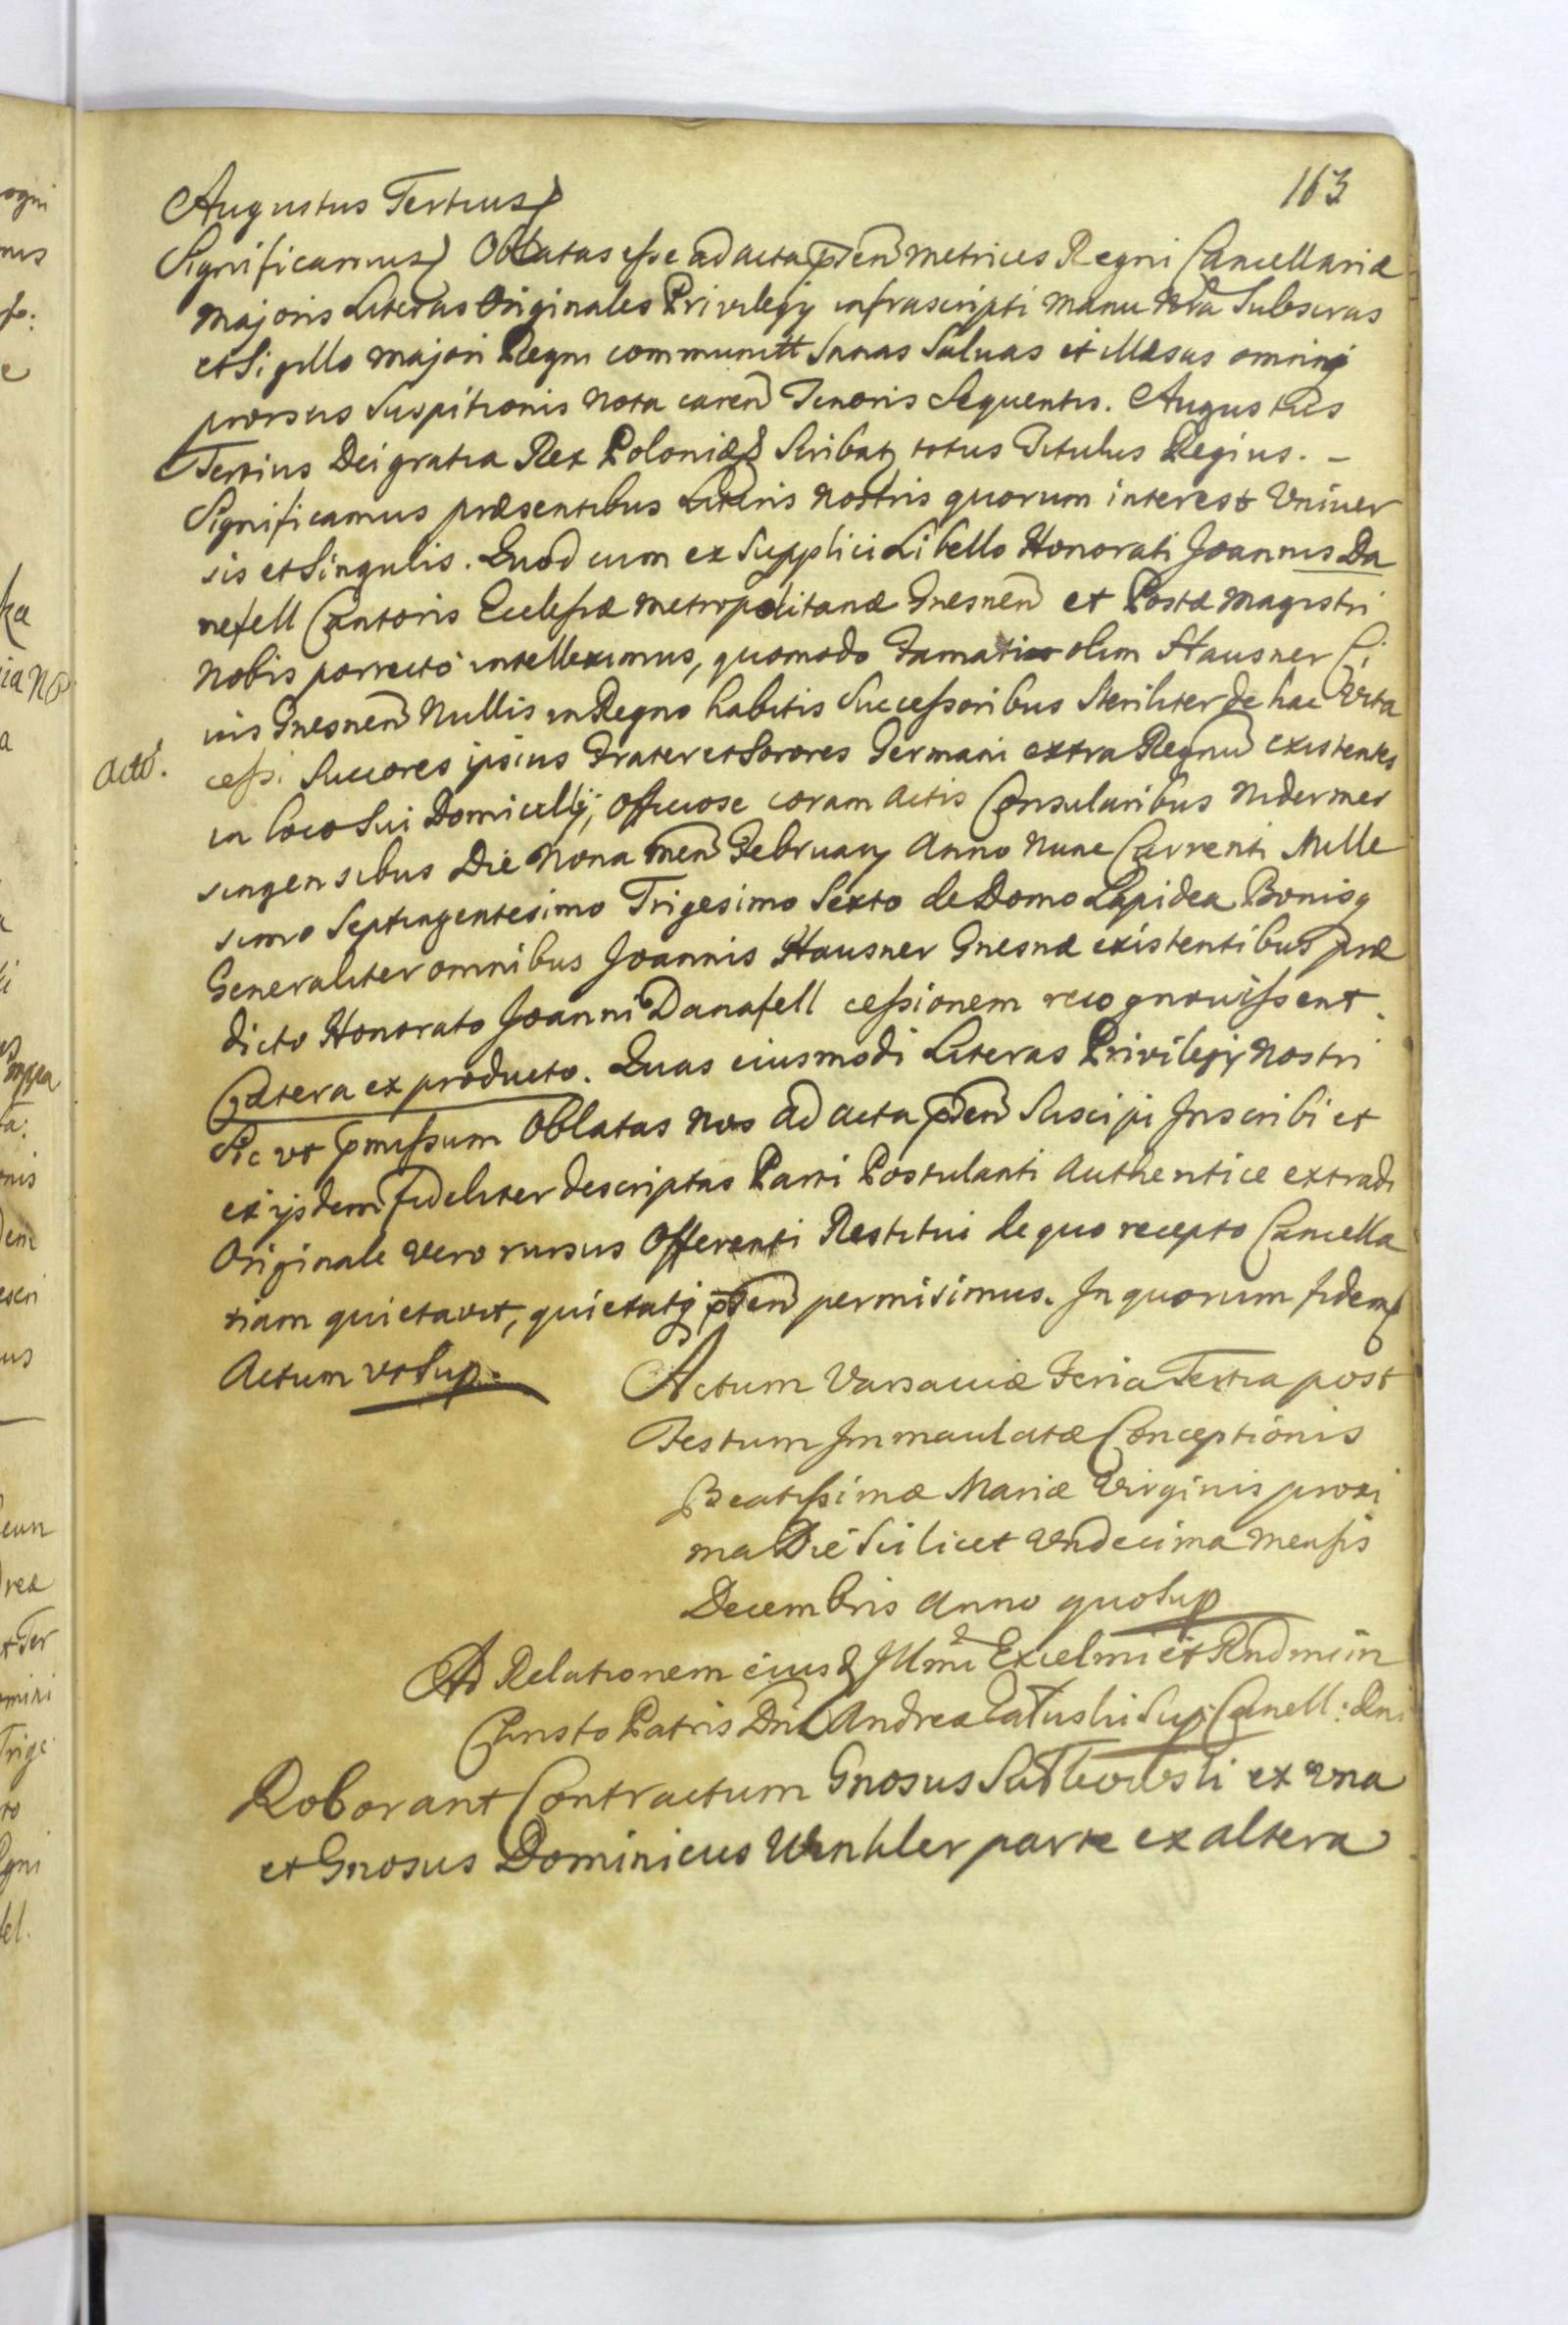 163
Augustus Tertius
Significamus Oblatas esse ad acta pñten metrices Regni Cancellariæ
majoris Literas Originales Privilegij infrascripti manu Nrã Subscras
et Sigillo majori Regni communitt Sanas Saluas et illæsas omniq
prorsus Suspitionis nota caren Tenoris Sequentis. Augustus
Tertius Dei gratia Rex Poloniæ Scribat totus Titulus Regius. –
Significamus præsentibus Literis nostris quorum interest Vniuer
sis et Singulis. Quod cum ex Supplici Libello Honorati Joannis Da
nefell Cantoris Ecclesiæ metropolitanæ Gnesnen et Postæ magistri
Nobis porrecto intelleximus, quomodo Famati olim Hausner Ci
uis Gnesnen Nullis in Regno habitis Successoribus Steriliter de hac Vita
acto.
cessi Succores ipsius Frater et Sorores Germani extra Regnũ existentes
in loco Sui Domicilÿ, officiose coram actis Consularibus Nidermer
singensibus Die Nona men February Anno nunc Currenti Mille
simo Septingentesimo Trigesimo Sexto de Domo Lapidea Bonisq
Generaliter omnibus Joannis Hausner Gnesnæ existentibus præ
dicto Honorato Joanni Danafell cessionem recognouissent.
Cætera ex producto. Quas eiusmodi Literas Privilegij Nostri
Sic vt pmissum Oblatas nos ad acta pñten Suscipi Inscribi et
ex ijsdem fideliter descriptas Parti Postulanti Authentice extradi
Originale vero rursus Offerenti Restitui de quo recepto Cancella
riam quietavit, quietatq pñten permisimus. In quorum fidem
Actum vt Sup.
Actum Varsauiæ Feria Tertia post
Festum Immaculatæ Conceptionis
Beatissimæ Mariæ Virginis proxi
ma Die Scilicet Vndecima mensis
Decembris Anno quo Sup
Ad Relationem eius Illmi Excelmi et Rndmi in
Christo Patris Dni Andreæ Załuski Sup. Cancell: Rni
Roborant Contractum Gnosus Sułkowski ex vna
et Gnosus Dominicus Winkler parte ex altera